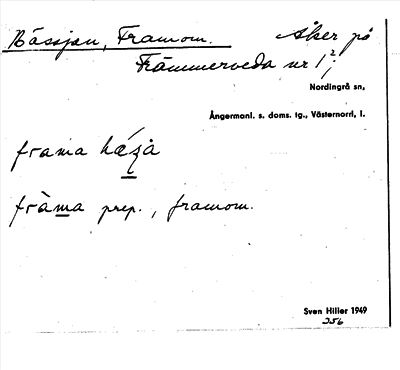 Bässjan, Framom. Åker på
Främmerveda nr 1²;
Nordingrå sn,
Ångermanl. s. doms. tg., Västernorrl, l.
frama hǽʒå
fràma prep., framom.
Sven Hiller 1949
256